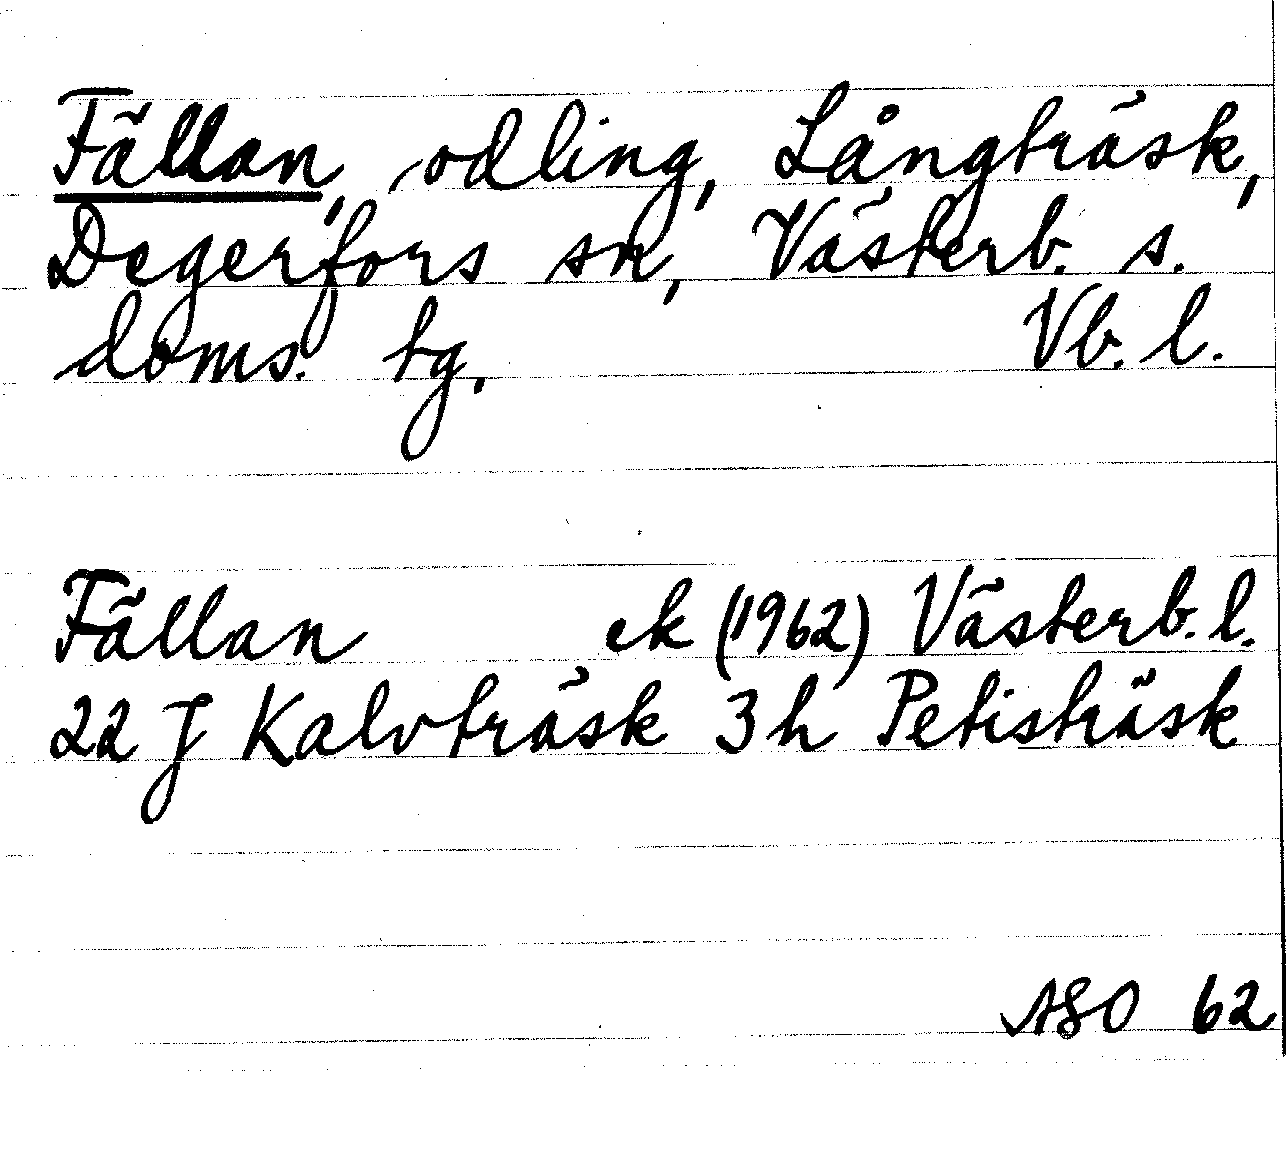 Fällan, odling, Långträsk,
Degerfors sn, Västerb. s.
doms. tg. Vb. l.
Fällan ek (1962) Västerb. l.
22 J Kalvträsk 3 h Petisträsk
ASO 62